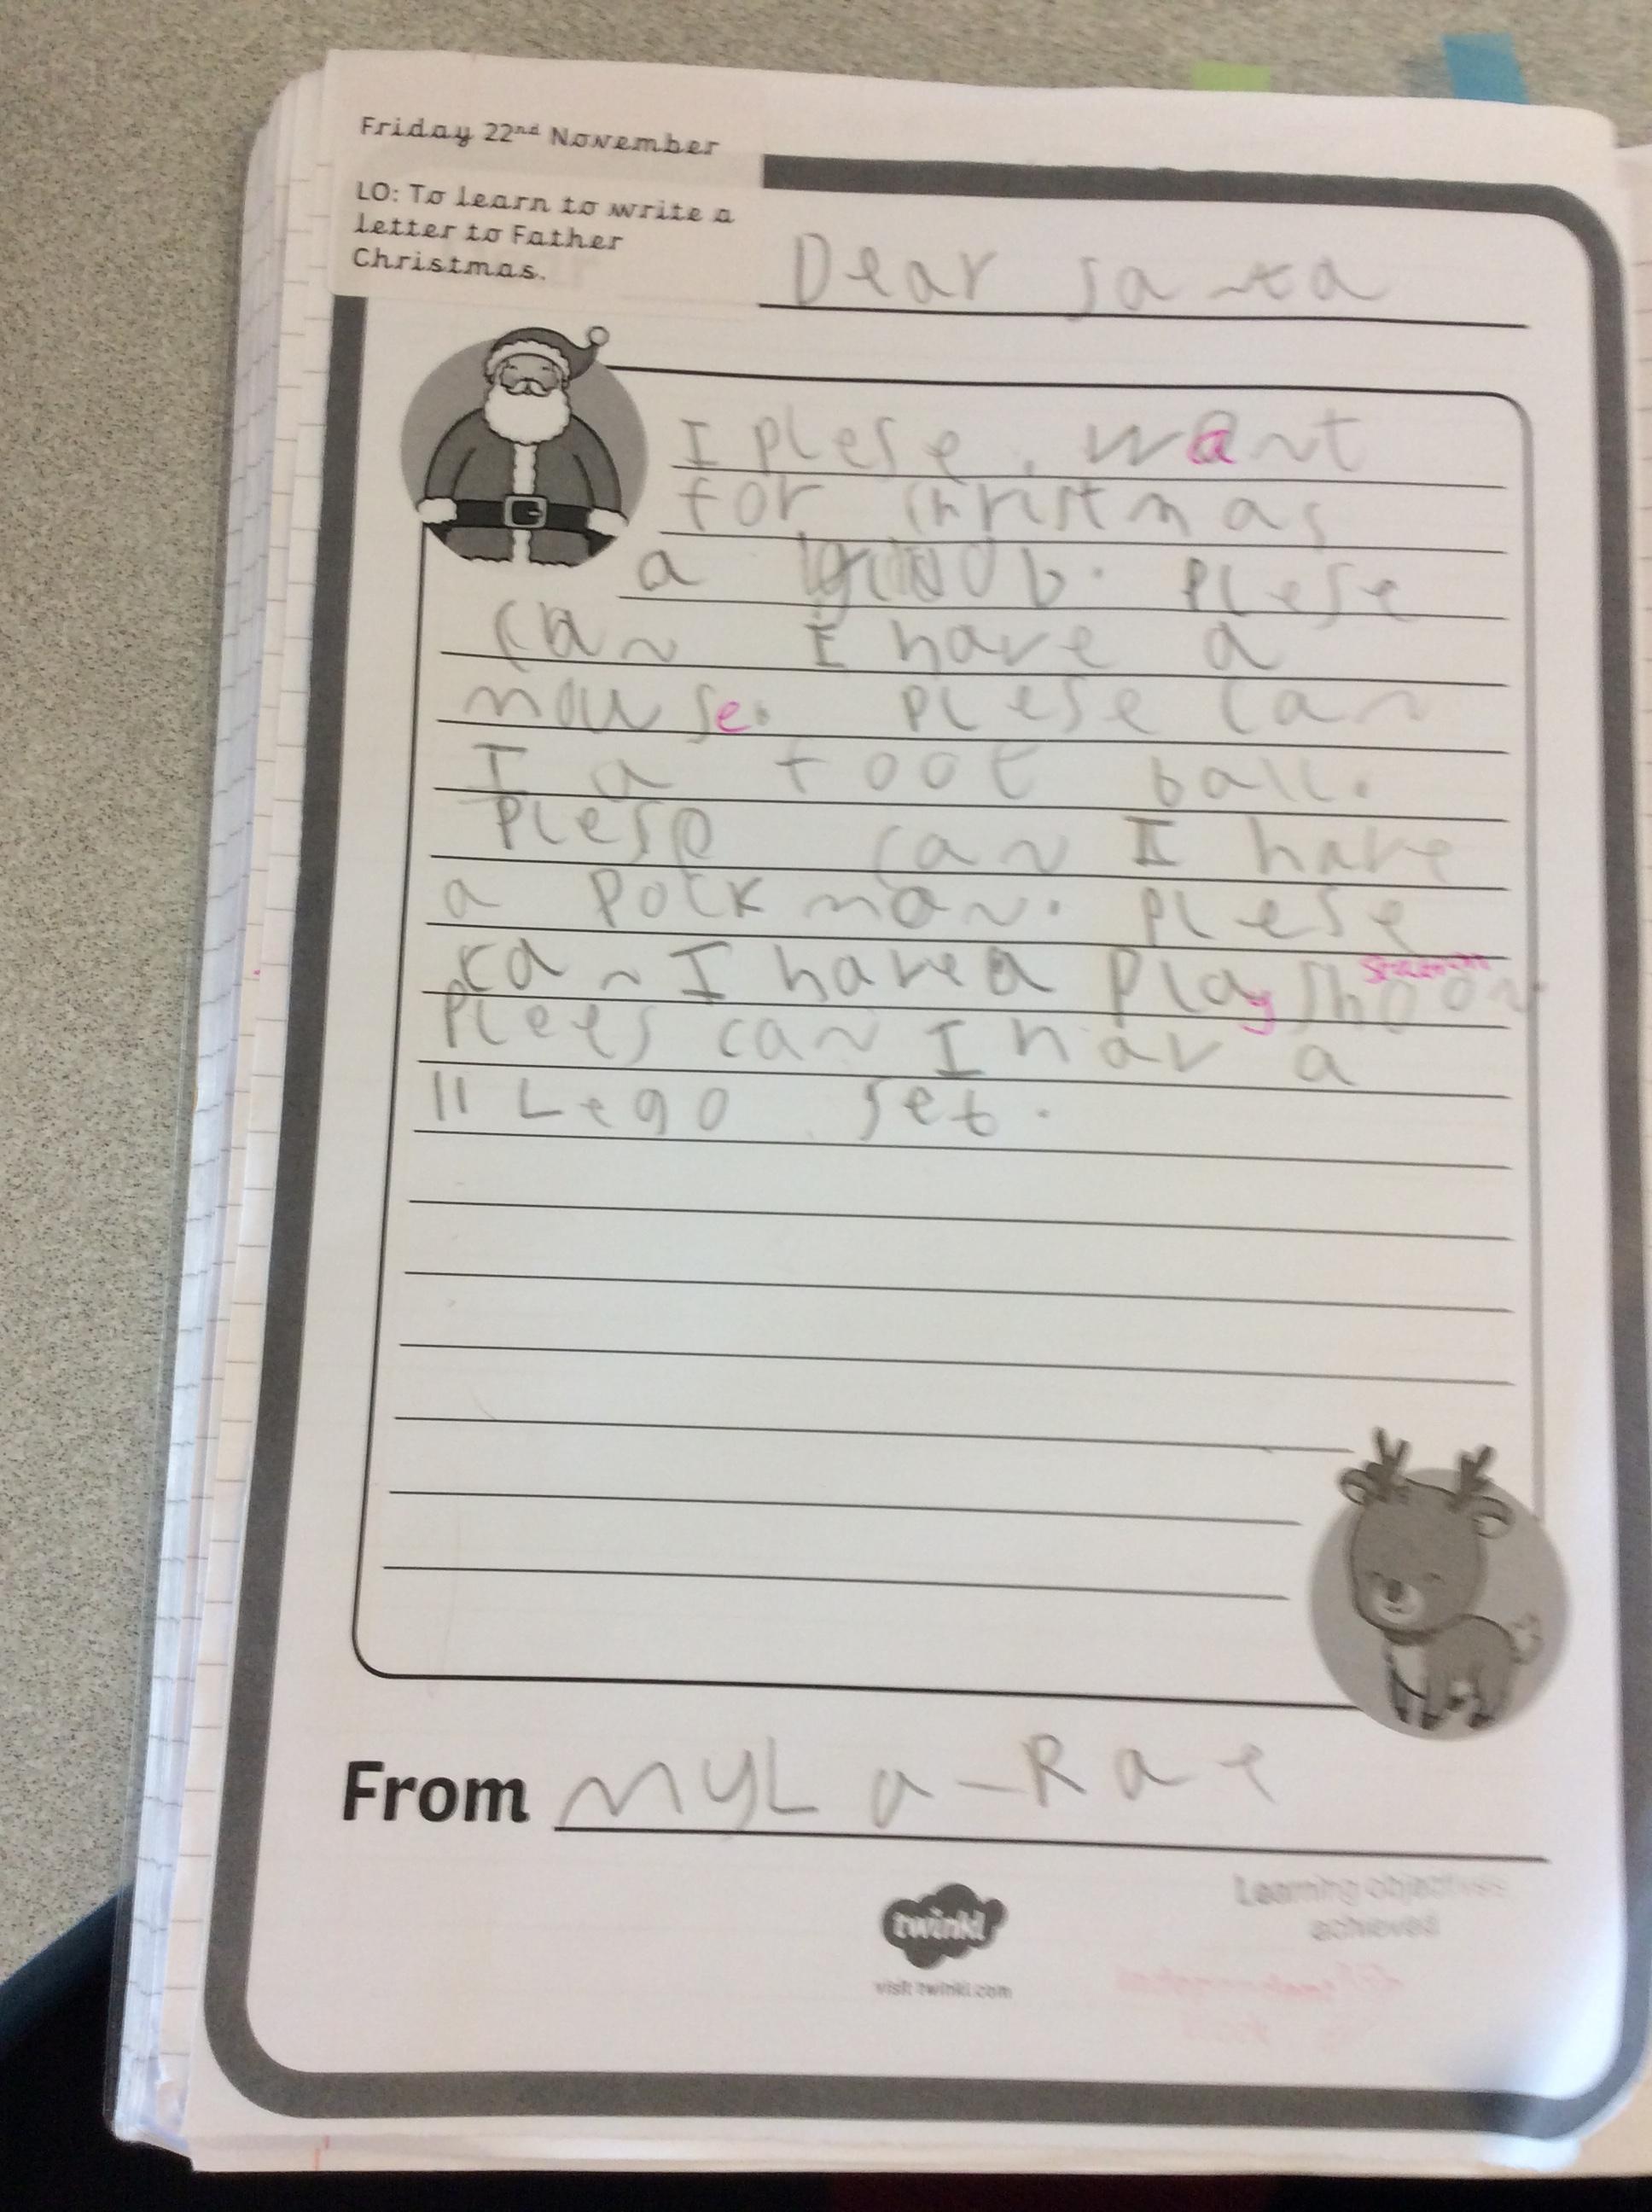 Friday 22nd November
LO: To learn to write a
letter to Father
Christmas.
Dear santa
I plese want
for christmas
a plese
can I have a
mouse. plese can
I a foot ball.
Plese can I have
a pockman. plese
can I have a play station shoon
plees can I hav a
11 Lego set.
From MYLa-Rae
twinkl
visit twinkl.com
Learning objectives
achieved
independent
work